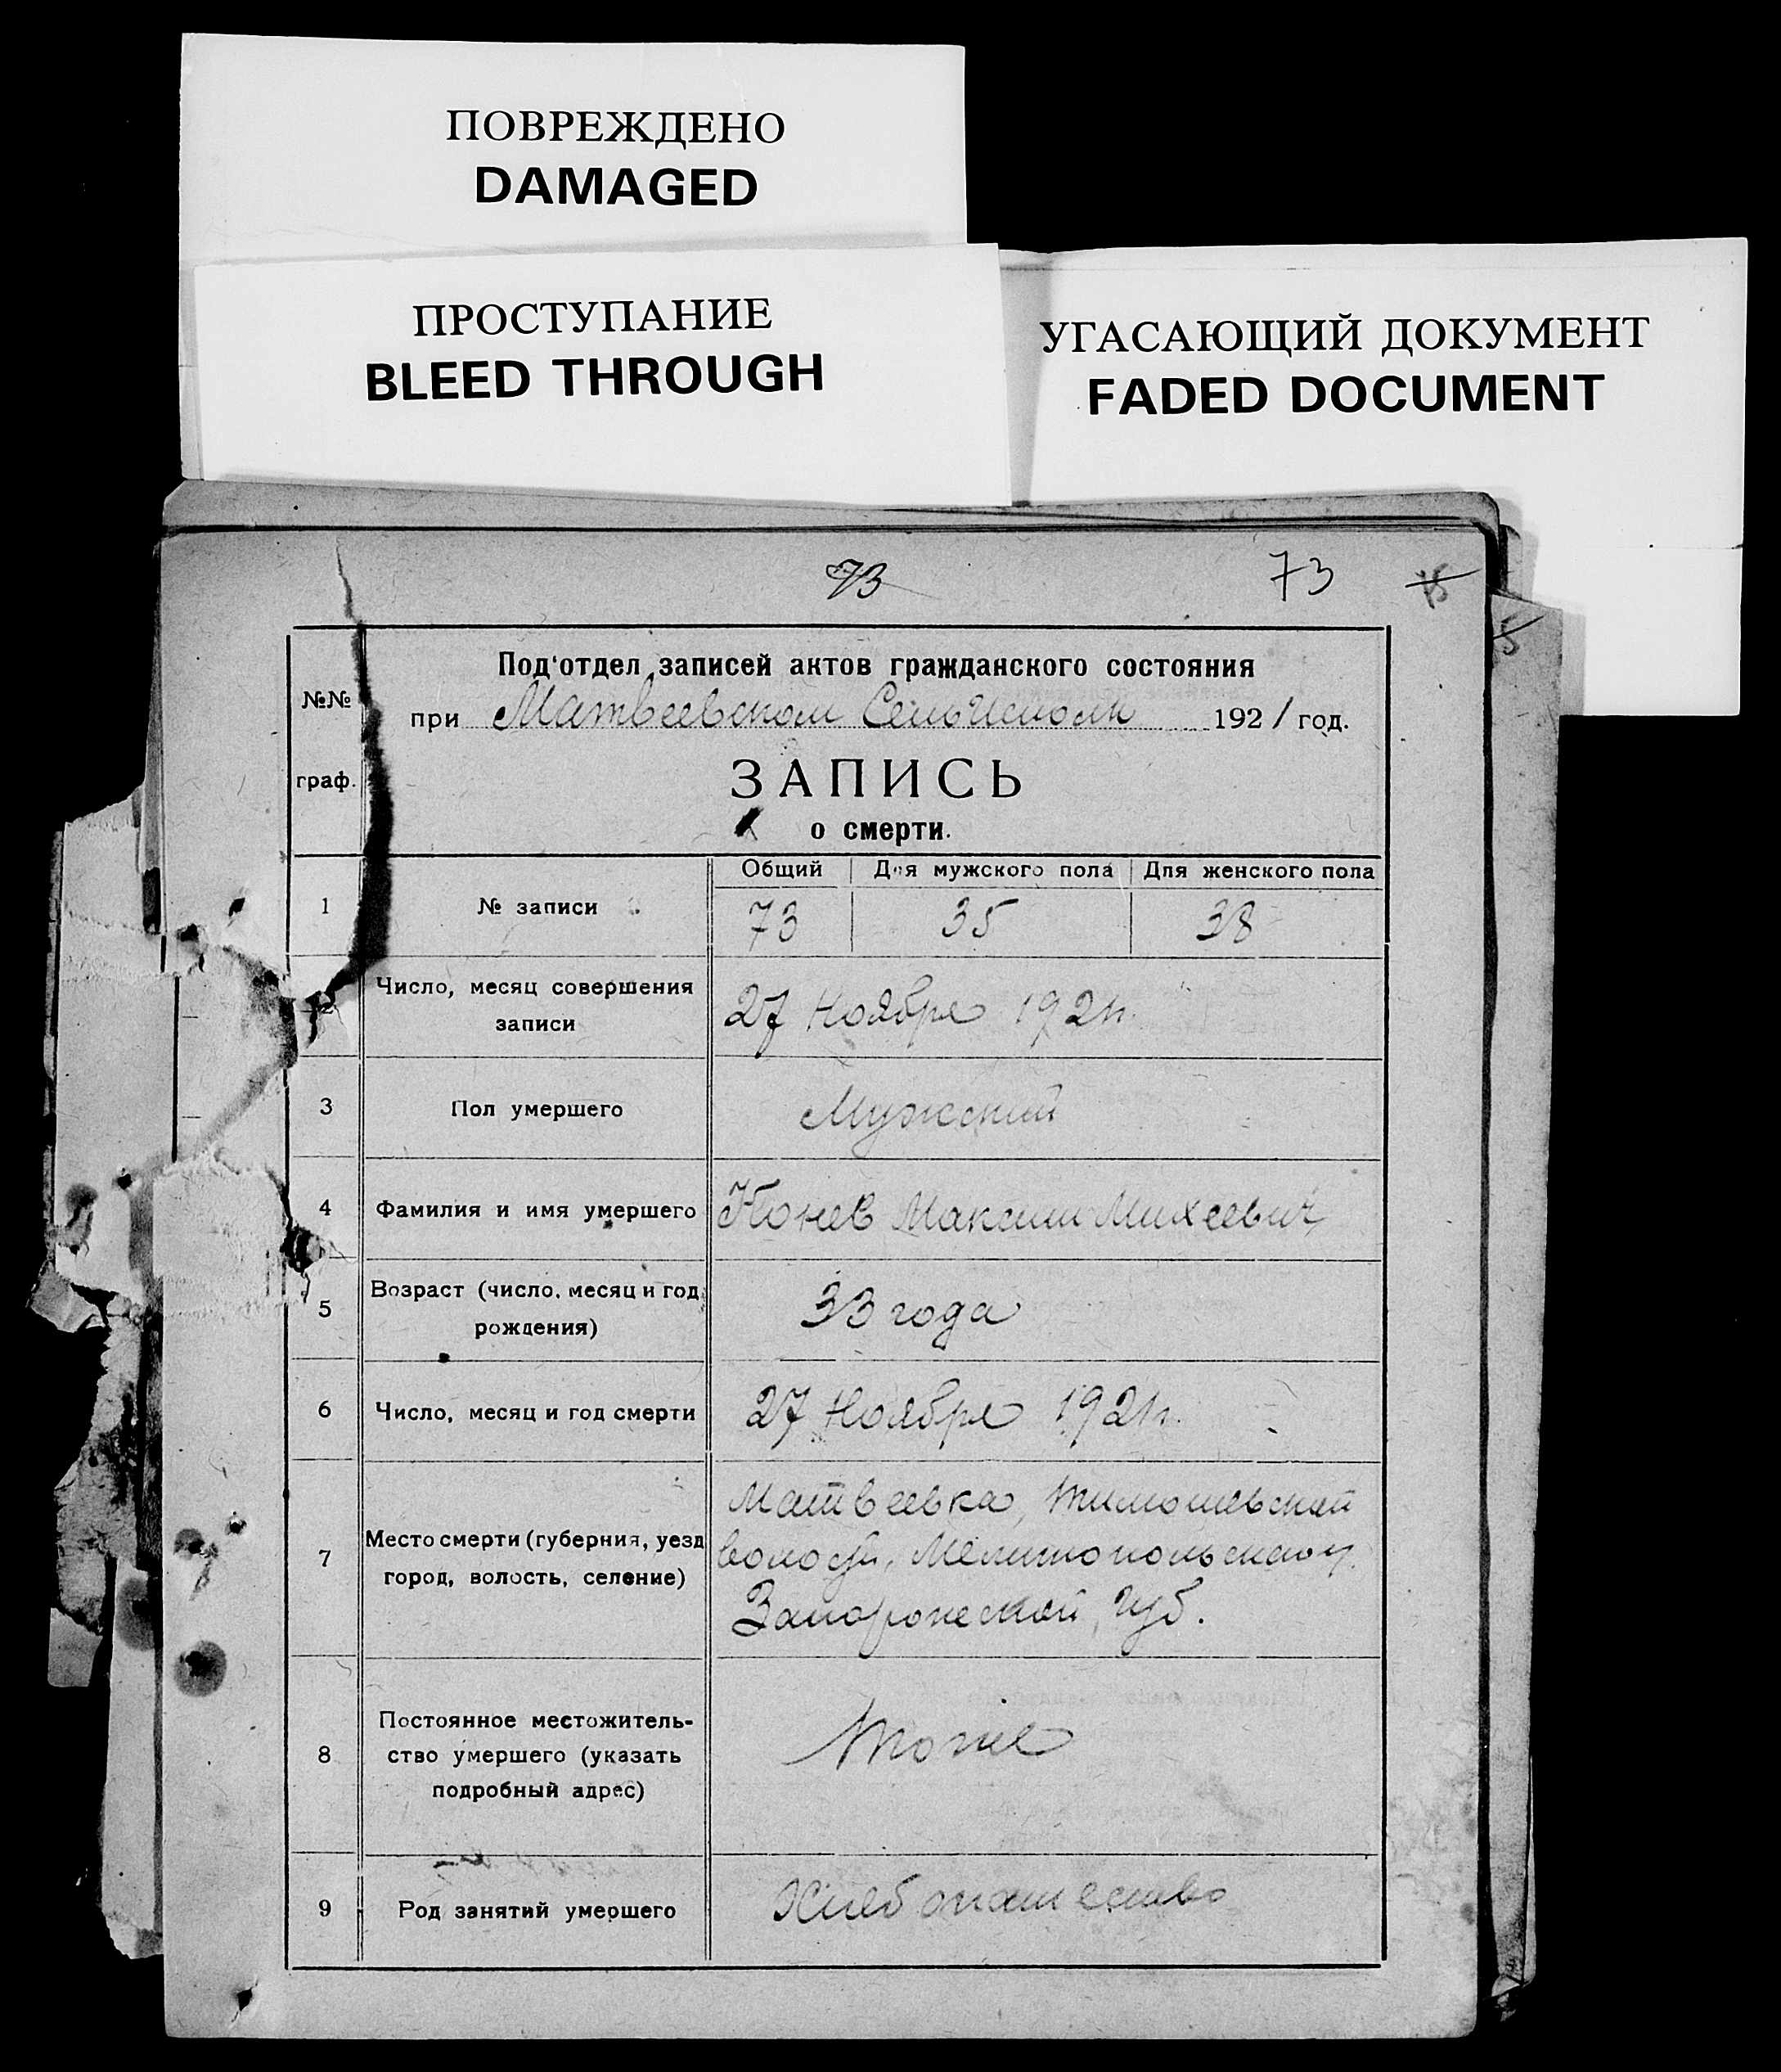 ПОВРЕЖДЕНО
DAMAGED
ПРОСТУПАНИЕ
BLEED THROUGH
УГАСАЮЩИЙ ДОКУМЕНТ
FADED DOCUMENT
73 73
№№ граф.
Под'отдел записей актов гражданского состояния
при Матвеевском Сельисполк 1921 год.
ЗАПИСЬ
о смерти.
Общий Для мужского пола Для женского пола
1 № записи 73 35 38
2 Число, месяц совершения
записи
27 Ноября 1921г.
3 Пол умершего Мужский
4 Фамилия и имя умершего Конев Максим Михеевич
5 Возраст (число, месяц и год
рождения)
33 года
6 Число, месяц и год смерти 27 Ноября 1921г.
7 Место смерти (губерния, уезд
город, волость, селение)
Матвеевка, Тимошевской
волости, Мелитопольского у.
Запорожской, Губ.
8 Постоянное местожитель-
ство умершего (указать
подробный адрес)
Тоже
9 Род занятий умершего Хлебопашество